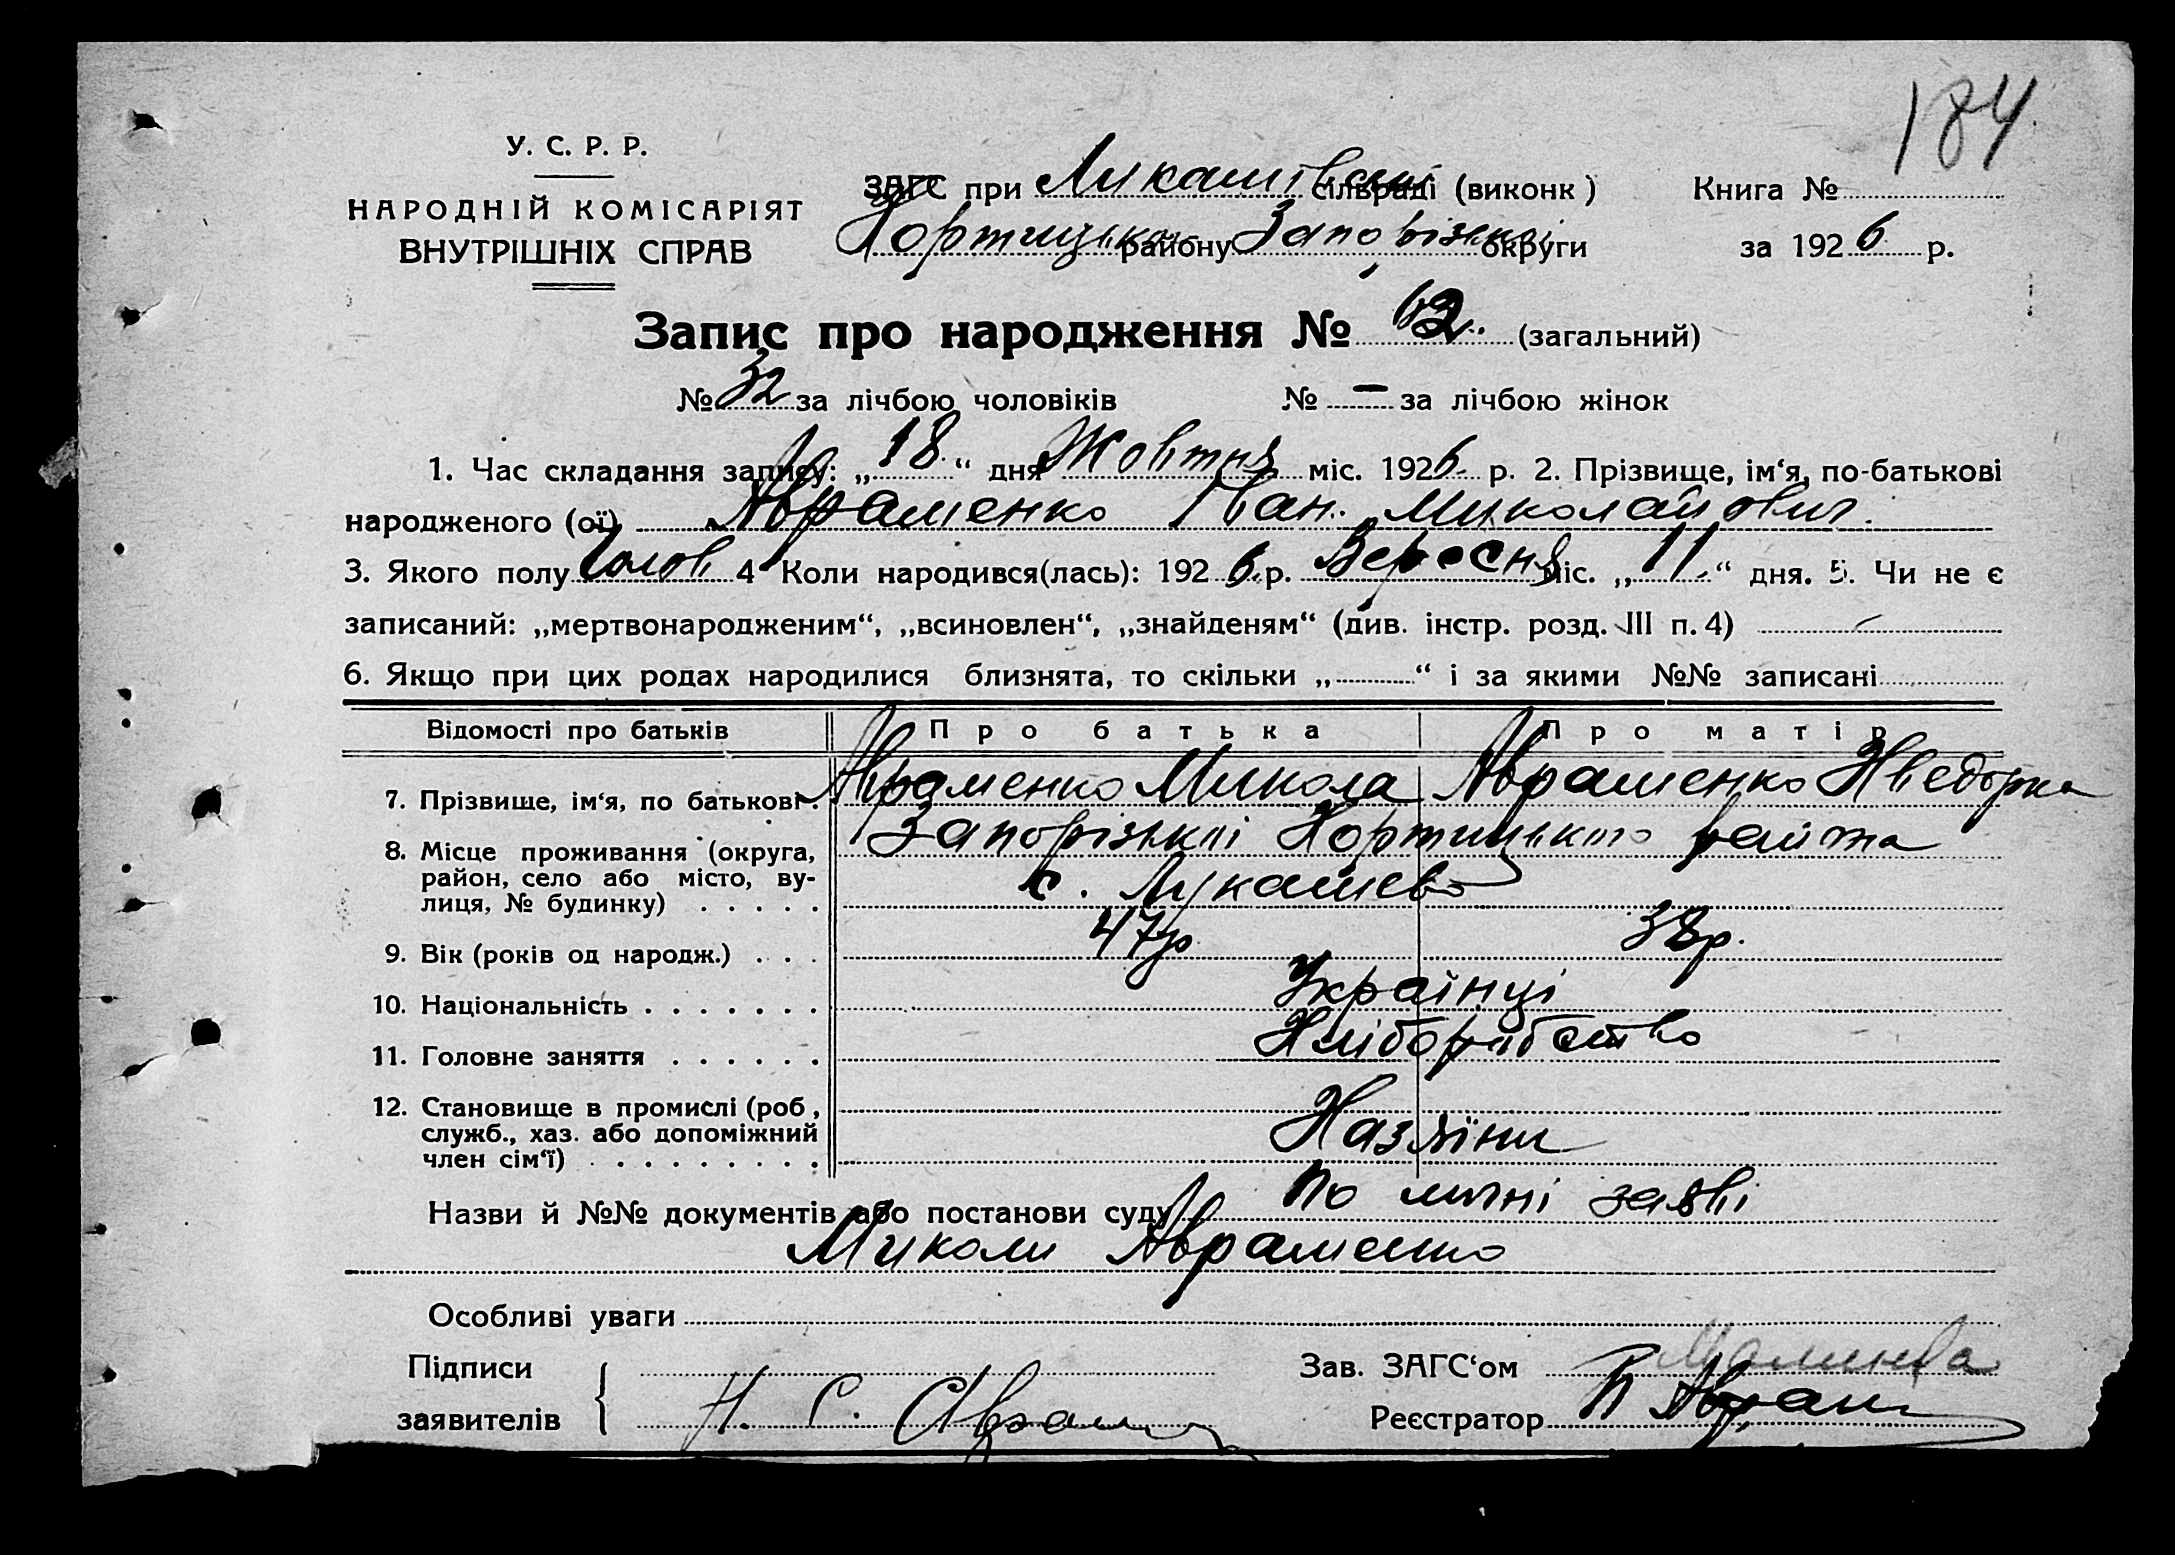 184
У. С. Р. Р.
НАРОДНІЙ КОМІСАРІЯТ
ВНУТРІШНІХ СПРАВ
ЗАГС при Лукашівській сільраді (виконк) Книга №
Хортицького району Запорізької округи за 1926 р.
Запис про народження № 62. (загальний)
№ 32 за лічбою чоловіків № — за лічбою жінок
1. Час складання запису: „18“ дня Жовтня міс. 1926 р. 2. Прізвище, ім‘я, по-батькові
народженого (ої) Авраменко Іван Миколайович.
3. Якого полу Чолов 4 Коли народився(лась): 1926 р. Вересня міс. „11“ дня. 5. Чи не є
записаний: „мертвонародженим“, „всиновлен“, „знайденям“ (див. інстр. розд. III п. 4) —
6. Якщо при цих родах народилися близнята, то скільки „ “ і за якими №№ записані
Відомості про батьків Про батька Про матір
7. Прізвище, ім‘я, по батькові. Авраменко Микола Авраменко
8. Місце проживання (округа, Запорізької Хортицького района
район, село або місто, ву-
лиця, № будинку) с. Лукашево
9. Вік (років од народж.) 47р 38р.
10. Національність Українці
11. Головне заняття Хліборобство
12. Становище в промислі (роб,
служб., хаз. або допоміжний Хазяїни
член сім‘ї)
Назви й №№ документів або постанови суду По личні заяві
Миколи Авраменко
Особливі уваги
Підписи Зав. ЗАГС‘ом
заявителів Н. С. Реєстратор